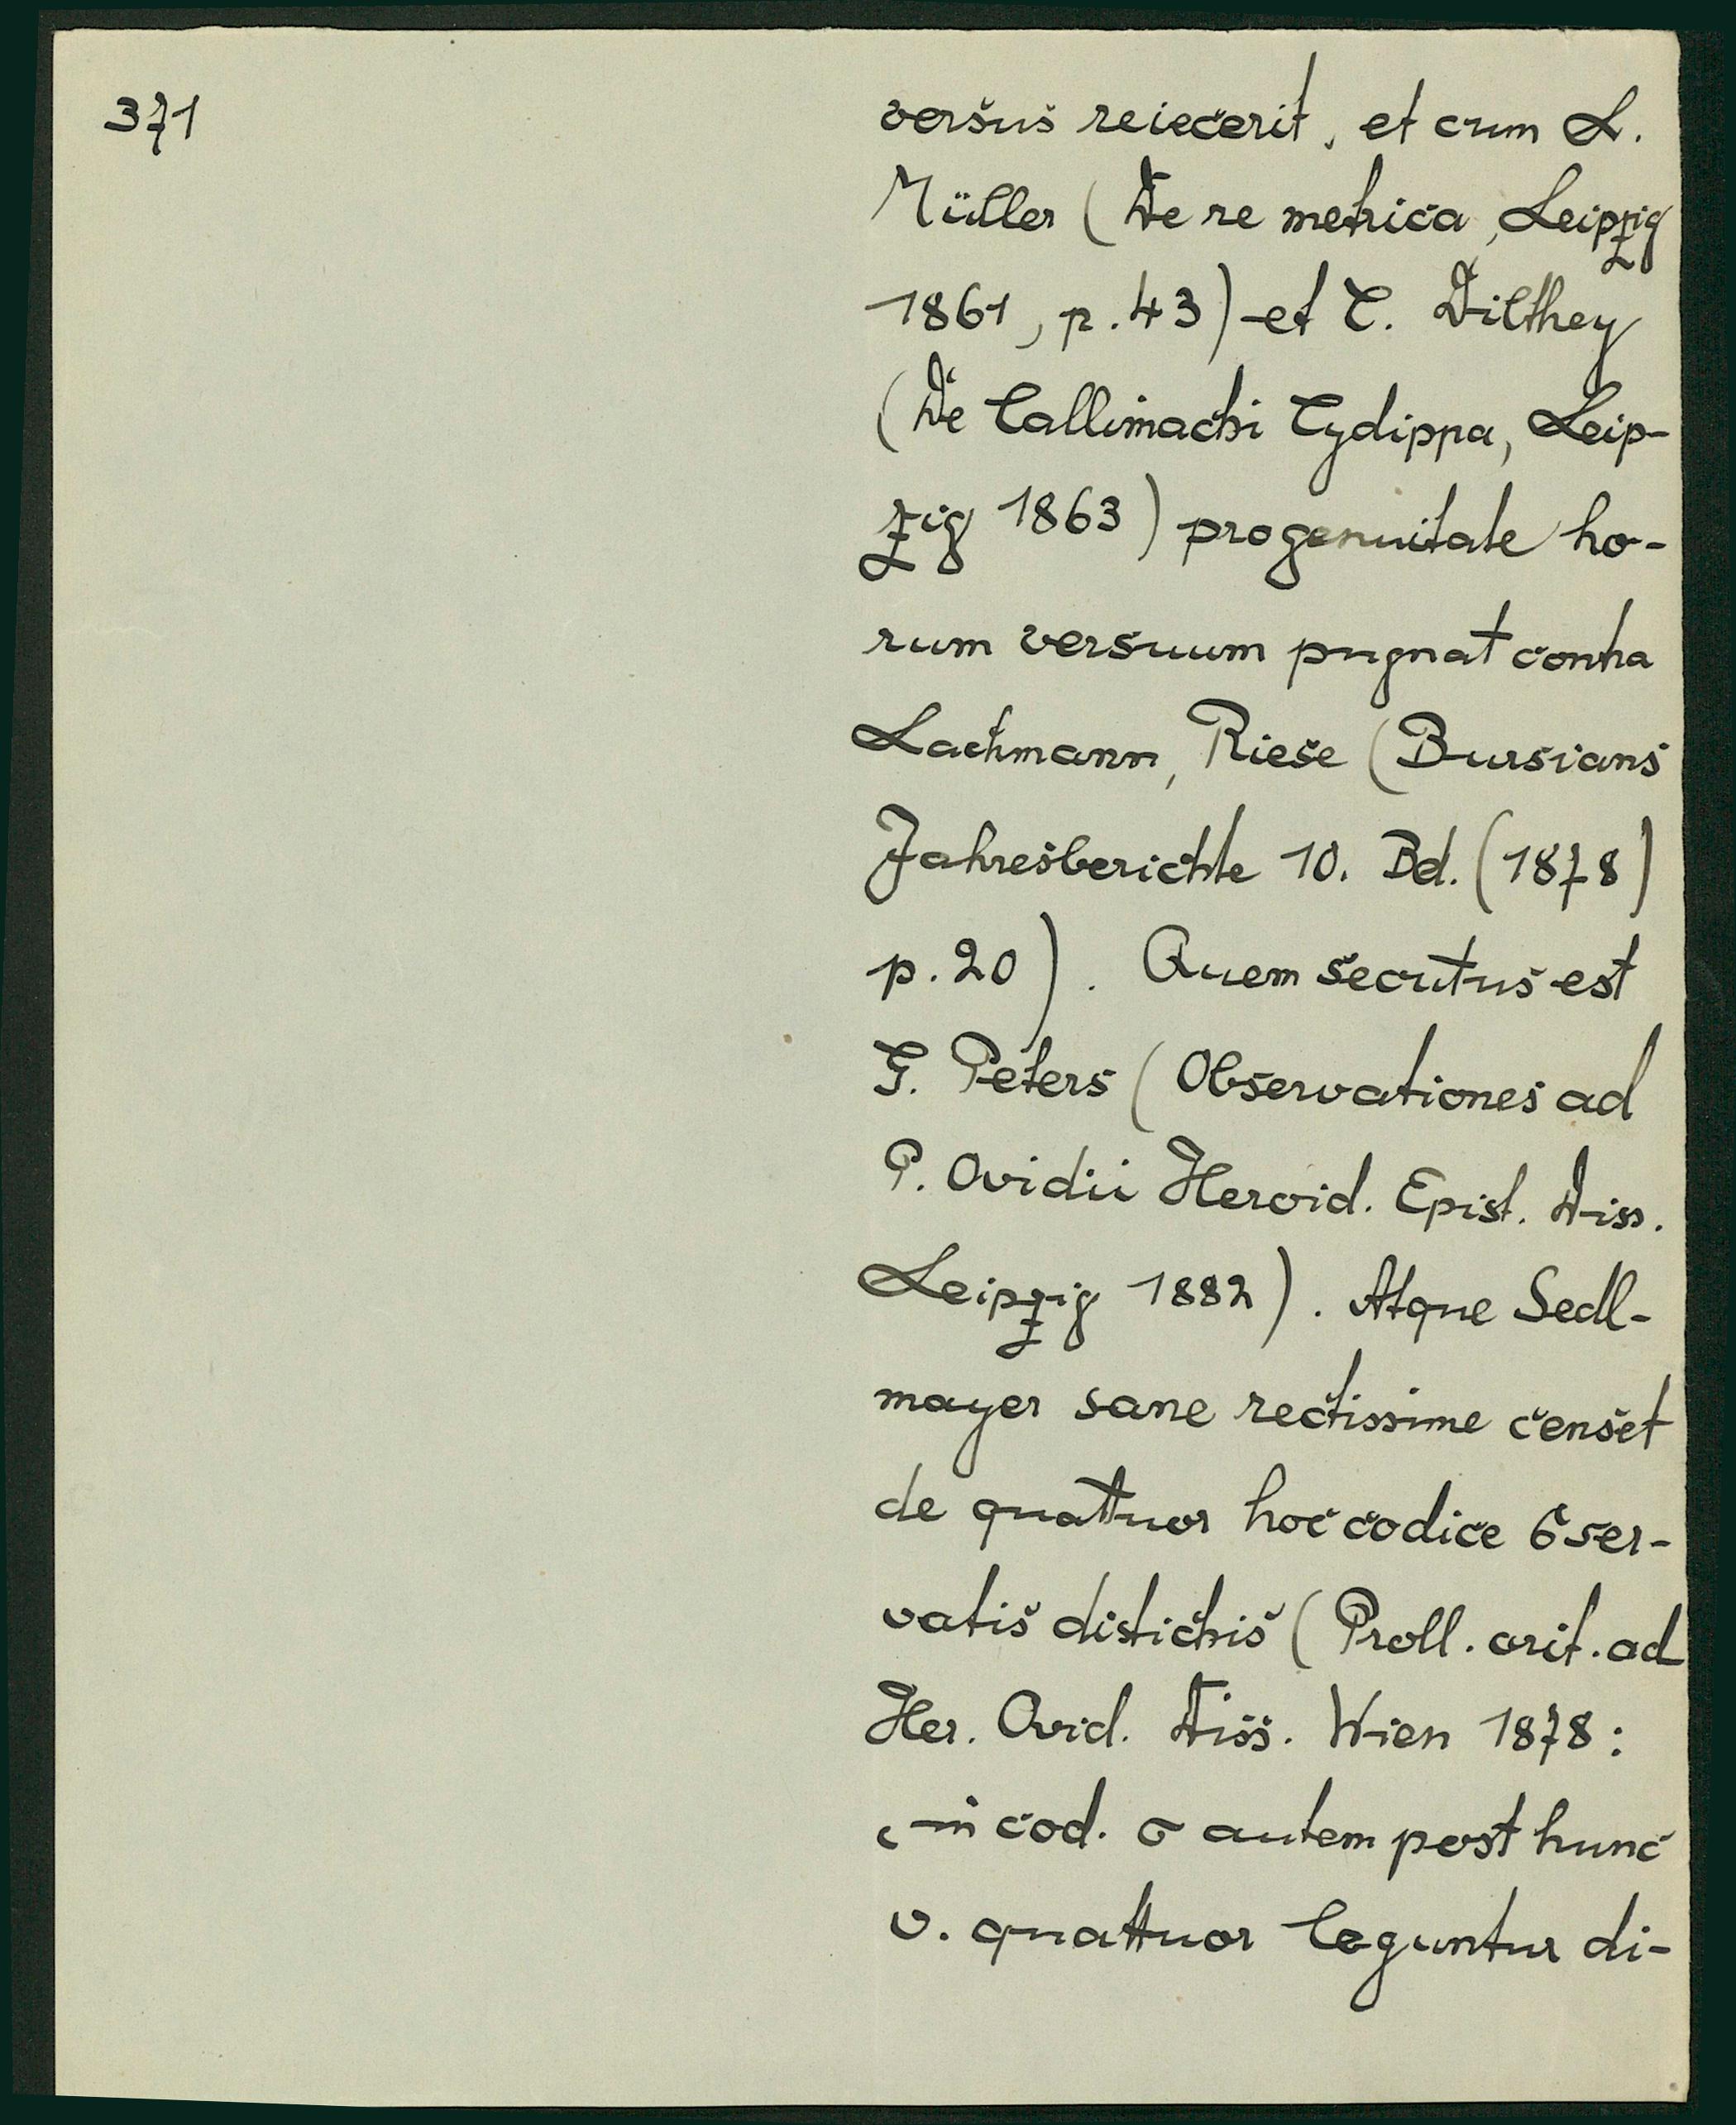 371
versus reiecerit, et cum L.
Müller (De re metrica, Leipzig
1861, p. 43) et C. Dilthey
(De Callimachi Cydippa, Leip-
zig 1863) pro genuitate ho-
rum versuum pugnat contra
Lachmann, Riese (Bursians
Jahresberichte 10. Bd. (1878)
p. 20). Quem secutus est
G. Peters (Observationes ad
P. Ovidii Heroid. Epist. Diss.
Leipzig 1882). Atque Sedl-
mayer sane rectissime censet
de quattuor hoc codice σ ser-
vatis distichis (Proll. crit. ad
Her. Ovid. Diss. Wien 1878:
‚in cod. σ autem post hunc
v. quattuor leguntur di-